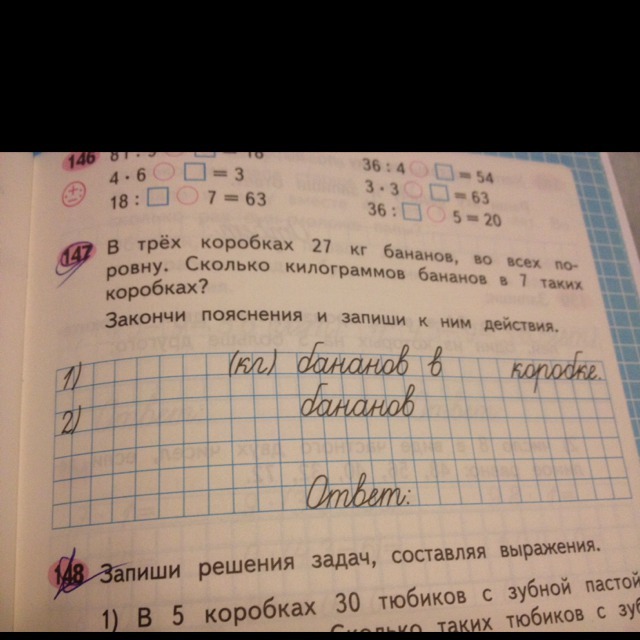 146
36 : 4 ○ □ = 54
4 · 6 ○ □ = 3
3 · 3 ○ □ = 63
18 : □ ○ 7 = 63
36 : □ ○ 5 = 20
147 В трёх коробках 27 кг бананов, во всех по-
ровну. Сколько килограммов бананов в 7 таких
коробках?
Закончи пояснения и запиши к ним действия.
1) (кг) бананов в коробке.
2) бананов
Ответ:
148 Запиши решения задач, составляя выражения.
1) В 5 коробках 30 тюбиков с зубной пастой
Сколько таких тюбиков с зуб